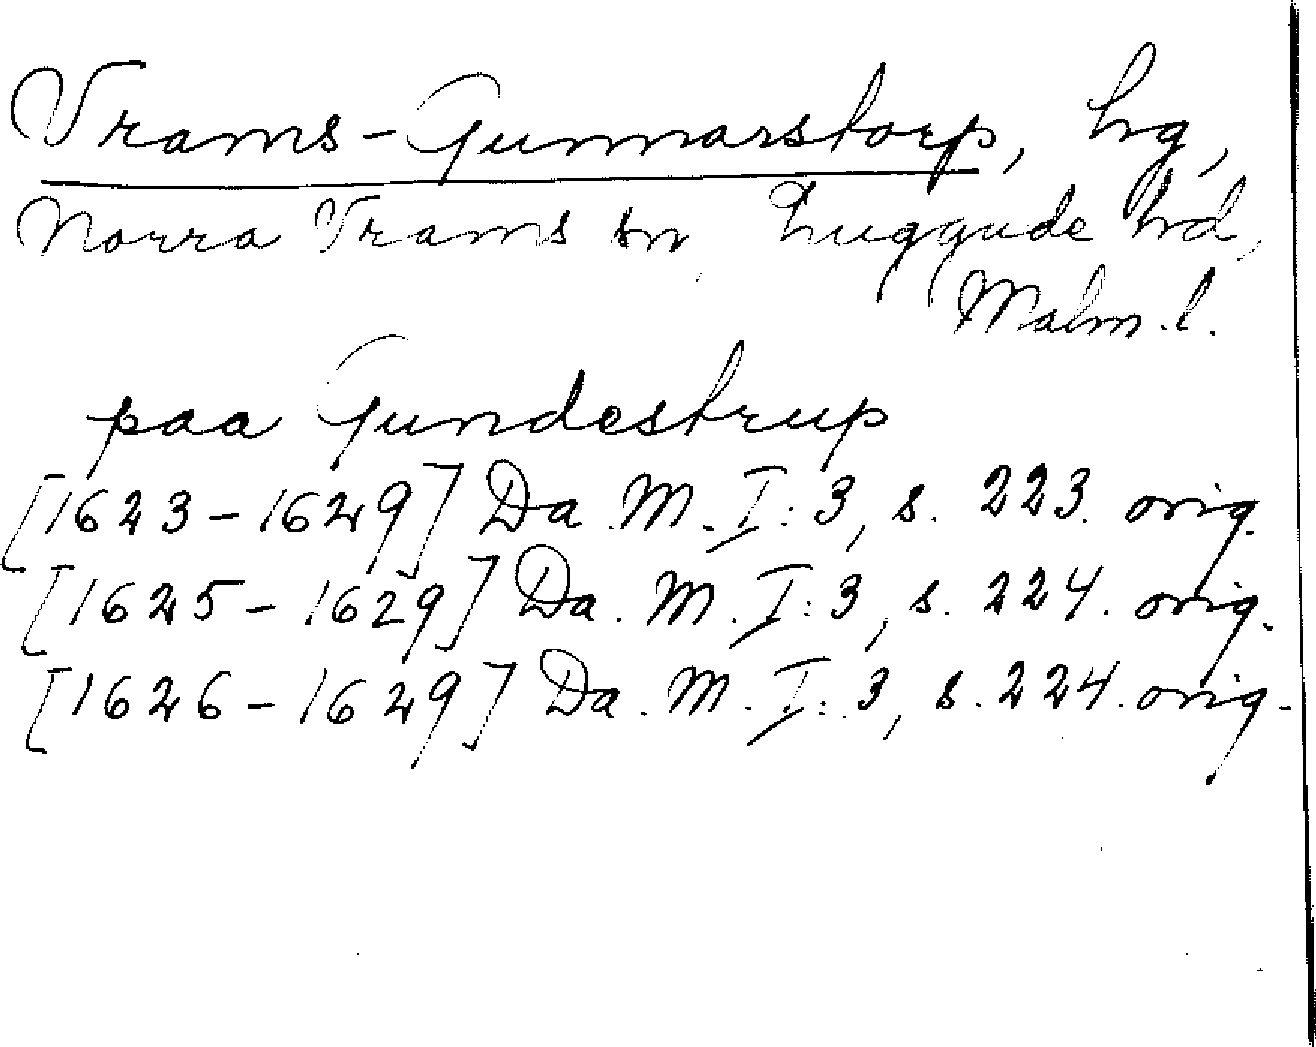 Vrams-Gunnarstorp, hg,
Norra Vrams sn, Luggude hd,
Malm. l.
paa Gundestrup
[1623-1629] Da. M. I: 3, s. 223. orig.
[1625-1629] Da. M. I: 3, s. 224. orig.
[1626-1629] Da. M. I: 3, s. 224. orig.